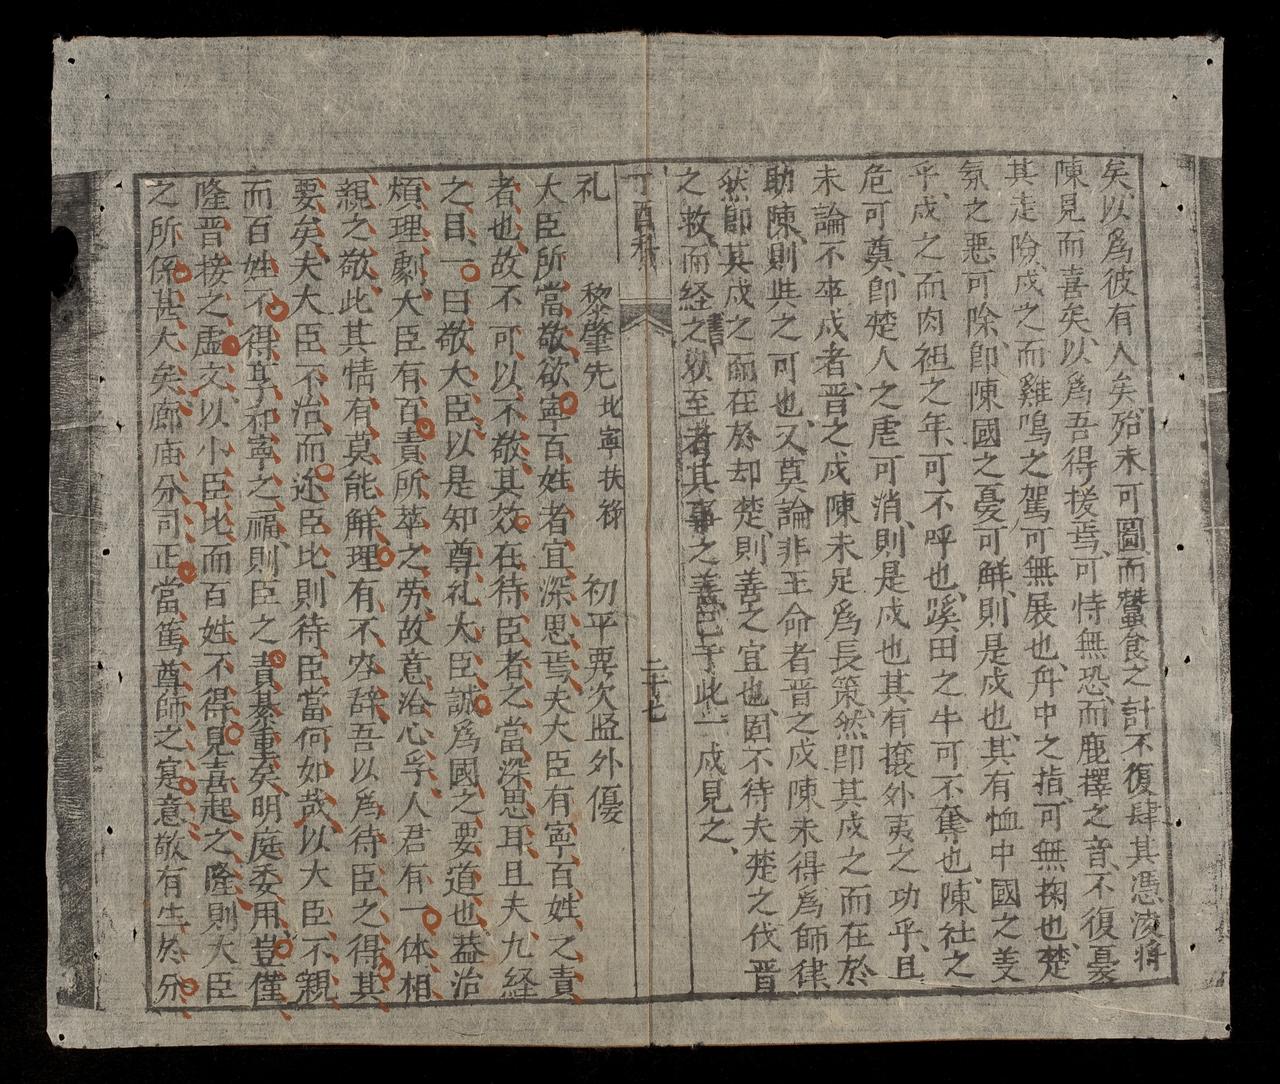 矣以爲彼有人矣殆未可圖而蠶食之計不復肆其憑淩將
陳見而喜矣以爲吾得援焉可恃無恐而鹿擇之音不復憂
其走險戍之而雞鳴之駕可無展也舟中之指可無掬也楚
氛之惡可除卽陳國之憂可鮮則是戍也其有恤中國之美
乎戍之而肉袒之年可不呼也蹊田之牛可不奪也陳社之
危可奠卽楚人之虐可消則是戍也其有攘外夷之功乎且
未論不卒戍者晋之戍陳未足爲長策然卽其戍之而在於
助陳則與之可也又莫論非王命者晋之戍陳未得爲師律
然卽其戍之而在於却楚則善之宜也固不待夫楚之伐晋
之救而経之書至者其事之善已于此一戍見之
丁酉科
二十七
礼 黎肇先 北寧扶 初平要次監外優
大臣所當敬欲寧百姓者宜深思焉夫大臣有寧百姓之責
者也故不可以不敬其效在待臣者之當深思耳且夫九経
之目一曰敬大臣以是知尊礼大臣誠爲國之要道也益治
煩理劇大臣有百責所萃之劳故意洽心孚人君有一体相
親之敬此其情有莫能解理有不容辞吾以爲待臣之得其
要矣夫大臣不治而迩臣比則待臣當何如哉以大臣不親
而百姓不得享和寧之福則臣之責綦重矣明庭委用豈僅
隆晋接之虛文以小臣比而百姓不得見喜起之隆則大臣
之所係甚大矣廊庙分司正當篤尊師之寔意敬有生於分